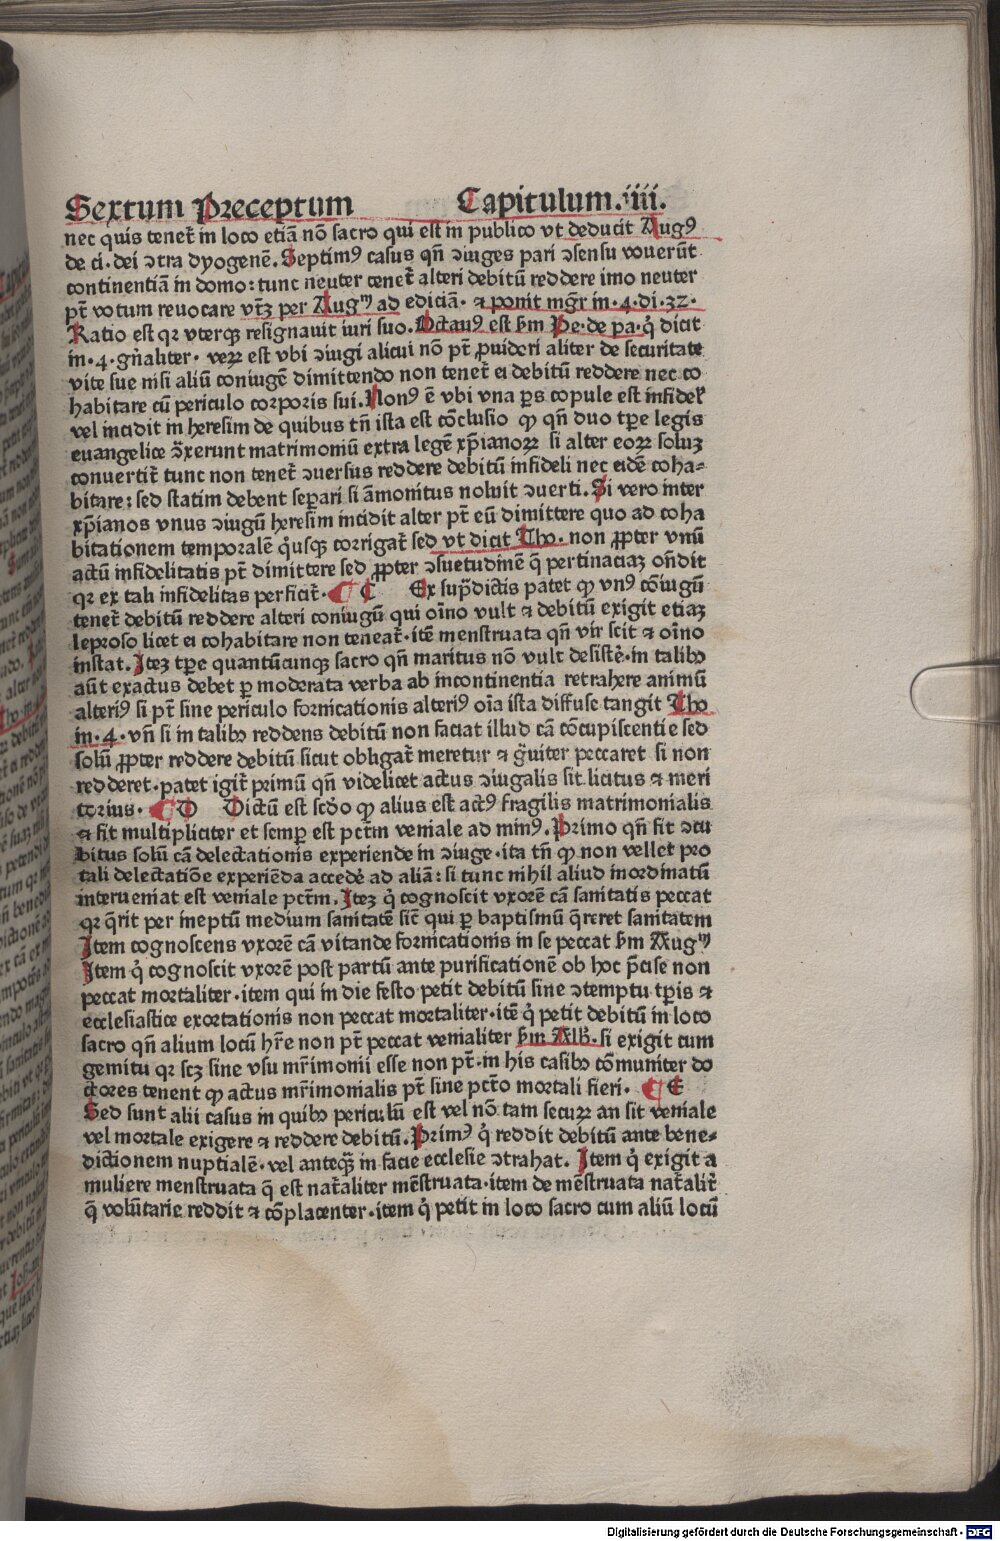 Sextum Preceptum Capitulum.iiii.
nec quis tenet᷑ in loco etiā nō sacro qui est in publico vt deducit Augꝰ
de ci·dei ɔtra dyogenē. Septimꝰ casus qn̄ ɔiuges pari ɔsensu vouerūt
continentiā in domo: tunc neuter tenet᷑ alteri debitū reddere imo neuter
pt̄ votum reuocare vt̄ꝫ per Augᵐ ad ediciā· ⁊ ponit mgr̄ in·4·di·32·
Ratio est qꝛ vterqꝫ resignauit iuri suo. Octauꝰ est ẜm Pe·de pa·q̇ dicit
in·4·gn̄aliter· veꝝ est vbi ɔiugi alicui nō pt̄ ꝓuideri aliter de securitate
vite sue nisi aliū coniugē dimittendo non tenet᷑ ei debitū reddere nec co
habitare cū periculo corporis sui. Nonꝰ ē vbi vna ꝑs copule est infidel'
vel incidit in heresim de quibus tn̄ ista est cōclusio ꝙ qn̄ duo tꝑe legis
euangelice ɔ̄xerunt matrimoniū extra legē xp̄ianoꝝ si alter eoꝝ soluꝫ
conuertit᷑ tunc non tenet᷑ ɔuersus reddere debitū infideli nec eidē coha⸗
bitare: sed statim debent seꝑari si āmonitus noluit ɔuerti. Si vero inter
xp̄ianos vnus ɔiugū heresim incidit alter pt̄ eū dimittere quo ad coha
bitationem temporalē q̇usqꝫ corrigat᷑ sed vt dicit Tho· non ꝓpter vnū
actū infidelitatis pt̄ dimittere sed ꝓpter ɔsuetudinē q̄ pertinaciaꝫ on̄dit
qꝛ ex tali infidelitas perficit᷑· ¶ C Ex sup̄dictis patet ꝙ vnꝰ cōiugū
tenet᷑ debitū reddere alteri coniugū qui oīno vult ⁊ debitū exigit etiaꝫ
leproso licet ei cohabitare non teneat᷑·itē menstruata qn̄ vir scit ⁊ oīno
instat. Iteꝫ tꝑe quantūcunqꝫ sacro qn̄ maritus nō vult desistė·in talibꝰ
aūt exactus debet ꝑ moderata verba ab incontinentia retrahere animū
alteriꝰ si pt̄ sine periculo fornicationis alteriꝰ oīa ista diffuse tangit Tho
in·4·vn̄ si in talibꝰ reddens debitū non faciat illud cā cōcupiscentie sed
solū ꝓpter reddere debitū sicut obligat᷑ meretur ⁊ g̈uiter peccaret si non
redderet·patet igit᷑ primū qn̄ videlicet actus ɔiugalis sit licitus ⁊ meri
torius· ¶ D Dictū est scd̄o ꝙ alius est actꝰ fragilis matrimonialis
⁊ fit multipliciter et semꝑ est pct̄m veniale ad minꝰ. Primo qn̄ fit ɔcu
bitus solū cā delectationis experiende in ɔiuge·ita tn̄ ꝙ non vellet pro
tali delectatiōe experiēda accedė ad aliā: si tunc nihil aliud inordinatū
interueniat est veniale pct̄m. Iteꝫ q̇ cognoscit vxorē cā sanitatis peccat
qꝛ q̄rit per ineptū medium sanitatē sic̄ qui ꝑ baptismū q̄reret sanitatem
Item cognoscens vxorē cā vitande fornicationis in se peccat ẜm Augᵐ
Item q̇ cognoscit vxorē post partū ante purificationē ob hoc p̄cise non
peccat mortaliter·item qui in die festo petit debitū sine ɔtemptu tꝑis ⁊
ecclesiastice exortationis non peccat mortaliter·itē q̇ petit debitū in loco
sacro qn̄ alium locū hr̄e non pt̄ peccat venialiter ẜm Alb̄·si exigit cum
gemitu qꝛ scꝫ sine vsu mr̄imonii esse non pt̄·in his casibꝰ cōmuniter do
ctores tenent ꝙ actus mr̄imonialis pt̄ sine pct̄o mortali fieri· ¶ E
Sed sunt alii casus in quibꝰ periculū est vel nō tam secuꝝ an sit veniale
vel mortale exigere ⁊ reddere debitū. Primꝰ q̇ reddit debitū ante bene⸗
dictionem nuptialē·vel anteqꝫ̄ in facie ecclesie ɔtrahat. Item q̇ exigit a
muliere menstruata q̄ est nat᷑aliter mēstruata·item de mēstruata nat᷑alit᷑
q̄ volūtarie reddit ⁊ cōplacenter·item q̇ petit in loco sacro cum aliū locū
Digitalisierung gefördert durch die Deutsche Forschungsgemeinschaft - DFG